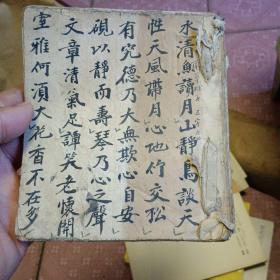 水清魚讀月山靜鳥談天
性天風帶月心地竹交松
有究德乃大無欺心自安
硯以靜而壽琴乃心之聲
文章清氣足譚笑老懷開
室雅何湏大花香不在多